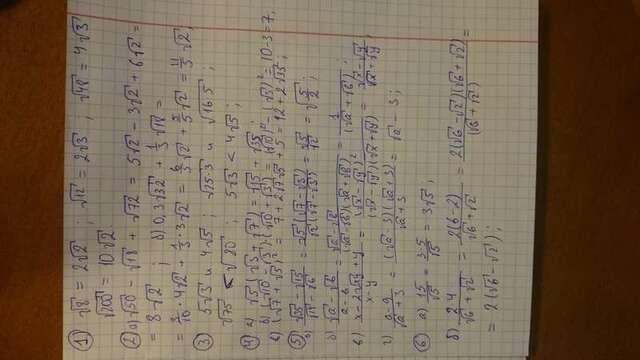 1) √8 = 2√2 ; √12 = 2√3 ; √48 = 4√3
√200 = 10√2
2) а) √50 − √18 + √72 = 5√2 − 3√2 + 6√2 =
= 8√2 ; б) 0,3√32 + 1/3 √18 =
= 3/10 · 4√2 + 1/3 · 3√2 = 6/5 √2 + 5/5 √2 = 11/5 √2 ;
3) 5√3 и 4√5 ; √25·3 и √16·5 ;
√75 < √80 ; 5√3 < 4√5 ;
4) а) √5(√3 + √7) = √15 + √35 ;
б) (√10 − √3)·(√10 + √3) = (√10)² − (√3)² = 10 − 3 = 7 ;
в) (√7 + √5)² = 7 + 2√7·√5 + 5 = 12 + 2√35 ;
5)
б) (√a − √b)/(a − b) = (√a − √b)/((√a − √b)(√a + √b)) = 1/(√a + √b) ;
в) (x − 2√xy + y)/(x − y) = (√x − √y)²/((√x − √y)(√x + √y)) = (√x − √y)/(√x + √y)
г) (a − 9)/(√a + 3) = ((√a − 3)(√a + 3))/(√a + 3) = √a − 3 ;
6) а) 15/√5 = 3·5/√5 = 3√5 ;
б) 2·4/(√6 + √2) = 2(6 − 2)/(√6 + √2) = 2(√6 − √2)(√6 + √2)/(√6 + √2) =
= 2(√6 − √2) ;